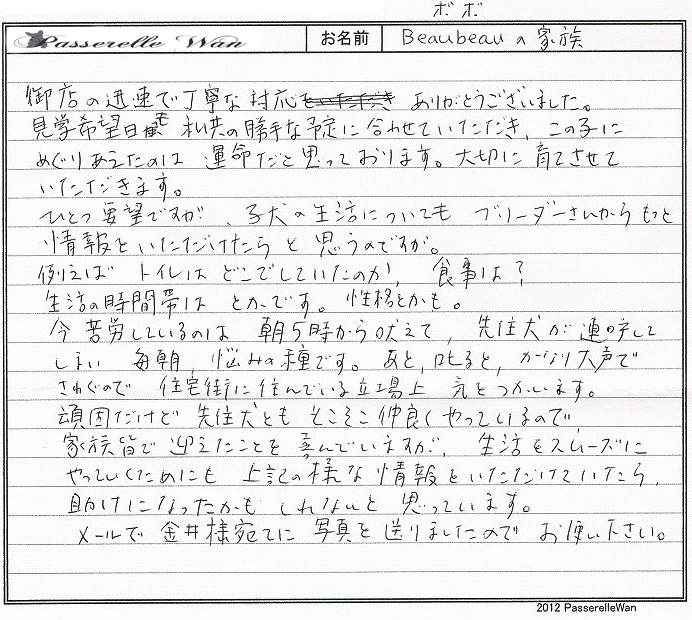 ボボ
Passerelle Wan お名前 Beaubeauの家族
御店の迅速で丁寧な対応 ありがとうございました。
見学希望日も 私共の勝手な予定に合わせていただき、この子に
めぐりあえたのは 運命だと思っております。大切に育てさせて
いただきます。
ひとつ要望ですが、子犬の生活についても ブリーダーさんからもっと
情報をいただけたらと思うのですが。
例えば トイレは どこでしていたのか、食事は?
生活の時間帯は とかです。性格とかも。
今 苦労しているのは 朝5時から吠えて、先住犬が連呼して
しまい 毎朝、悩みの種です。あと、叱ると、かなり大声で
さわぐので 住宅街に住んでいる立場上 気をつかいます。
頑固だけど 先住犬とも そこそこ仲良くやっているので、
家族皆で迎えたことを喜んでいますが、生活をスムーズに
やっていくためにも 上記の様な情報をいただけていたら、
助けになったかも しれないと思っています。
メールで 金井様宛てに 写真を送りましたので お使い下さい。
2012 PasserelleWan